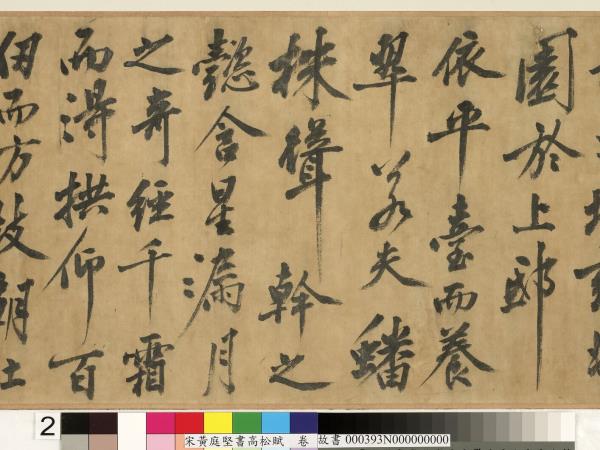 園於上邸
依平臺而養
翠若夫蟠
株聳幹之
懿含星漏月
之奇經千霜
而得拱仰百
仞而方枝朝吐
2
宋黃庭堅書高松賦 卷 故書 000393N000000000